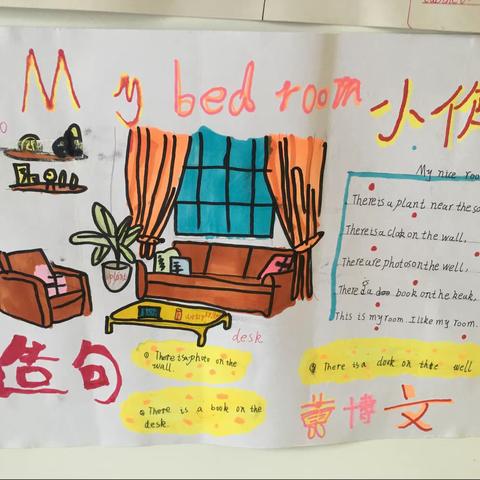 My bedroom
小作
My nice roo
There is a plant near the so
There is a clok on the wall.
There are photos on the well,
There is a book on the heak,
This is my room. I like my room.
plant
desk
造句
① There is a photo on the wall.
② There is a book on the desk.
③ There is a dock on the well
黄博文